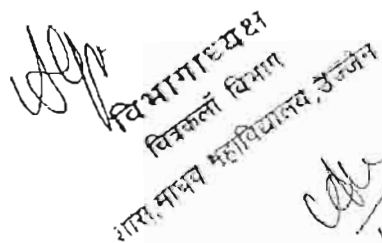 विभागाध्यक्ष
चित्रकला विभाग
शास. माधव महाविद्यालय, उज्जैन